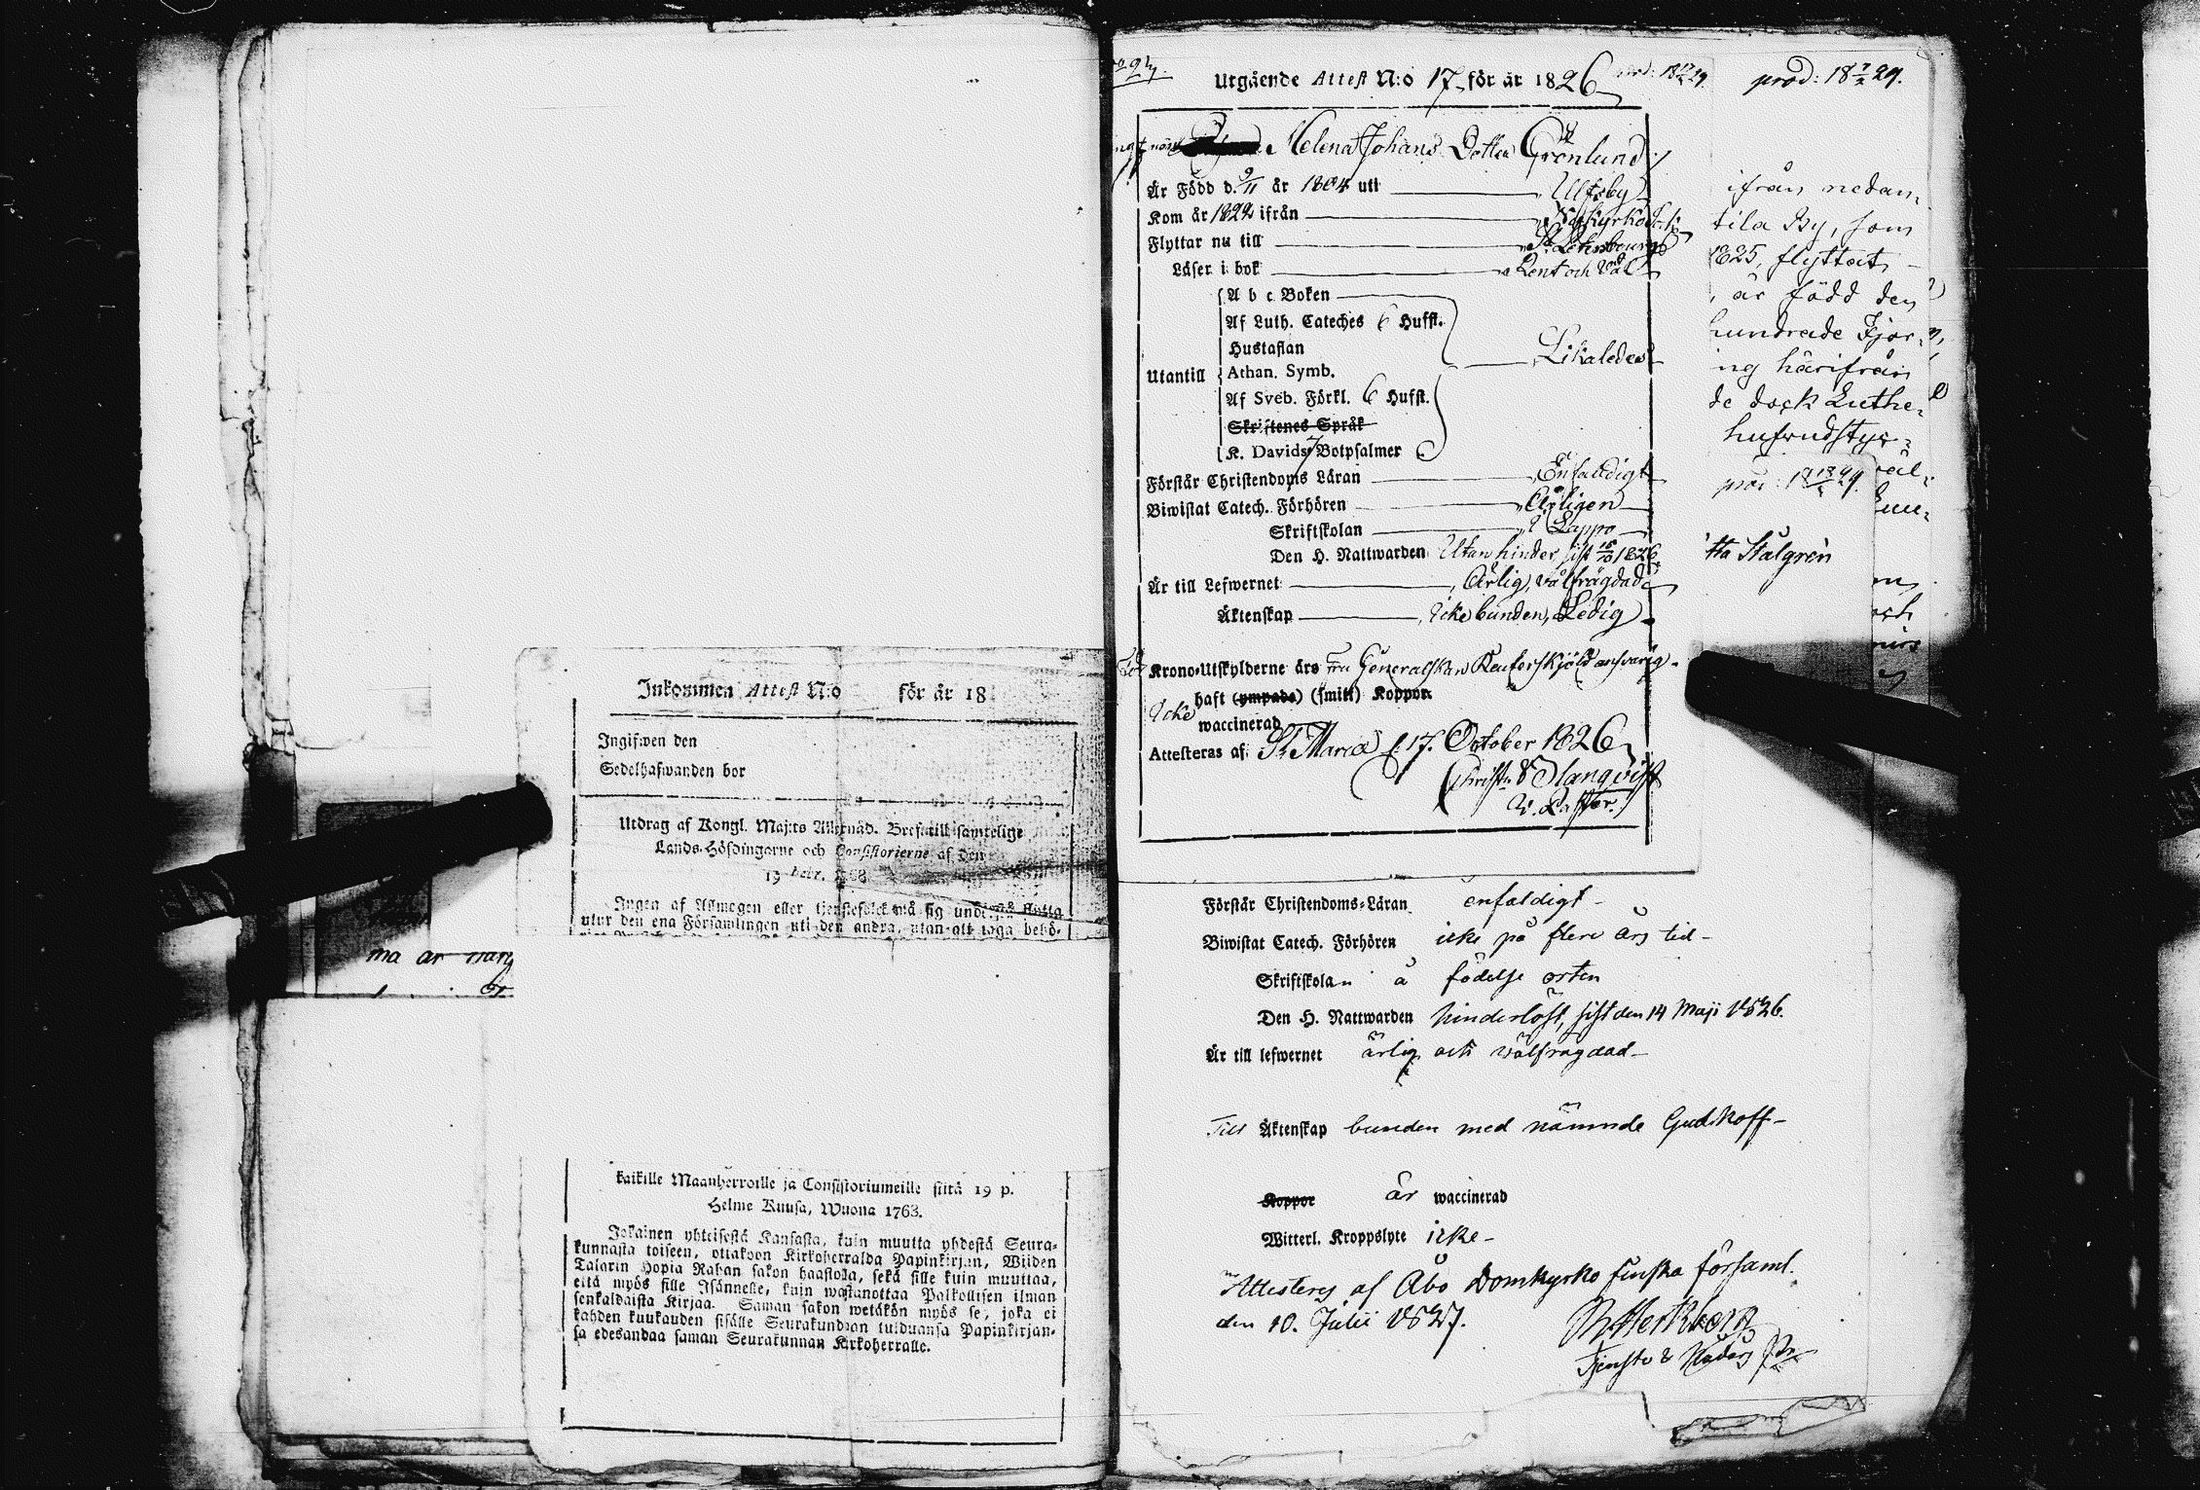 Inkommen Attest N:o för år 18
Ingifwen den
Sedelhafwanden bor
Utdrag af Kongl. Maj:ts Allernåd. Bref till samtelige
Lands-Höfdingarne och Consistorierne af den
19 Febr.
Ingen af Allmogen eller tjenstefolck må sig understå flytta
utur den ena Församlingen uti den andra, utan att taga behö-
ma är
kaikille Maanherroille ja Consistoriumeille siitä 19 p.
Helme Kuusa, Wuona 1763.
Jokainen yhteisestä Kansasta, kuin muutta yhdestä Seura-
kunnasta toiseen, ottakoon Kirkoherralda Papinkirjan, Wiiden
Talarin Hopia Rahan sakon haastolla, sekä sille kuin muuttaa,
että myös sille Isännelle, kuin wastanottaa Palkollisen ilman
senkaldaista Kirjaa. Saman sakon wetäkön myös se, joka ei
kahden kuukauden sisälle Seurakundaan tulduansa Papinkirjan-
sa edesandaa saman Seurakunnan Kirkoherralle.
Utgående Attest N:o 17 för år 1826
prod: 18 7/2 29.
Helena Johans Dotter Grönlund
Är Född d. 9/11 år 1804 uti Ultsby
Kom år 1822 ifrån
Flyttar nu till St Petersbourg
Läser i bok Rent och Väl
A b c Boken
Af Luth. Cateches 6 Hufst.
Hustaflan
Likaledes
Utantill Athan. Symb.
Af Sveb. Förkl. 6 Hufst.
Skriftenes Språk
K. Davids 7 Botpsalmer
Förstår Christendoms Läran Enfaldigt
Biwistat Catech. Förhören Årligen
Skriftskolan i Lappo
Den H. Nattwarden Utan hinder, sist 15/10 1826
Är till Lefwernet Ärlig, välfrägdad
Äktenskap Icke bunden, Ledig
För Krono-Utskylderne års Fru Generalskan Reuterskjöld ansvarig
haft (ympade) (smitt) Koppor
Icke waccinerad
Attesteras af St Mariæ d. 17. October 1826
V. Pastor.
ifrån nedan
tila By, som
1825, flyttat
, är född den
hundrade Fjor
ing härifrån
de dock Luthe
hufvudstyc
Stålgrén
Förstår Christendoms-Läran enfaldigt
Biwistat Catech. Förhören icke på flere års tid
Skriftskolan å födelse orten
Den H. Nattwarden hinderlöst, sist den 14 Maji 1826.
Är till lefwernet ärlig och välfrägdad
Till Äktenskap bunden med nämnde Gudskoff
Koppor är waccinerad
Witterl. Kroppslyte icke
Attesteras af Åbo Domkyrko finska församl.
den 10. Julii 1827.